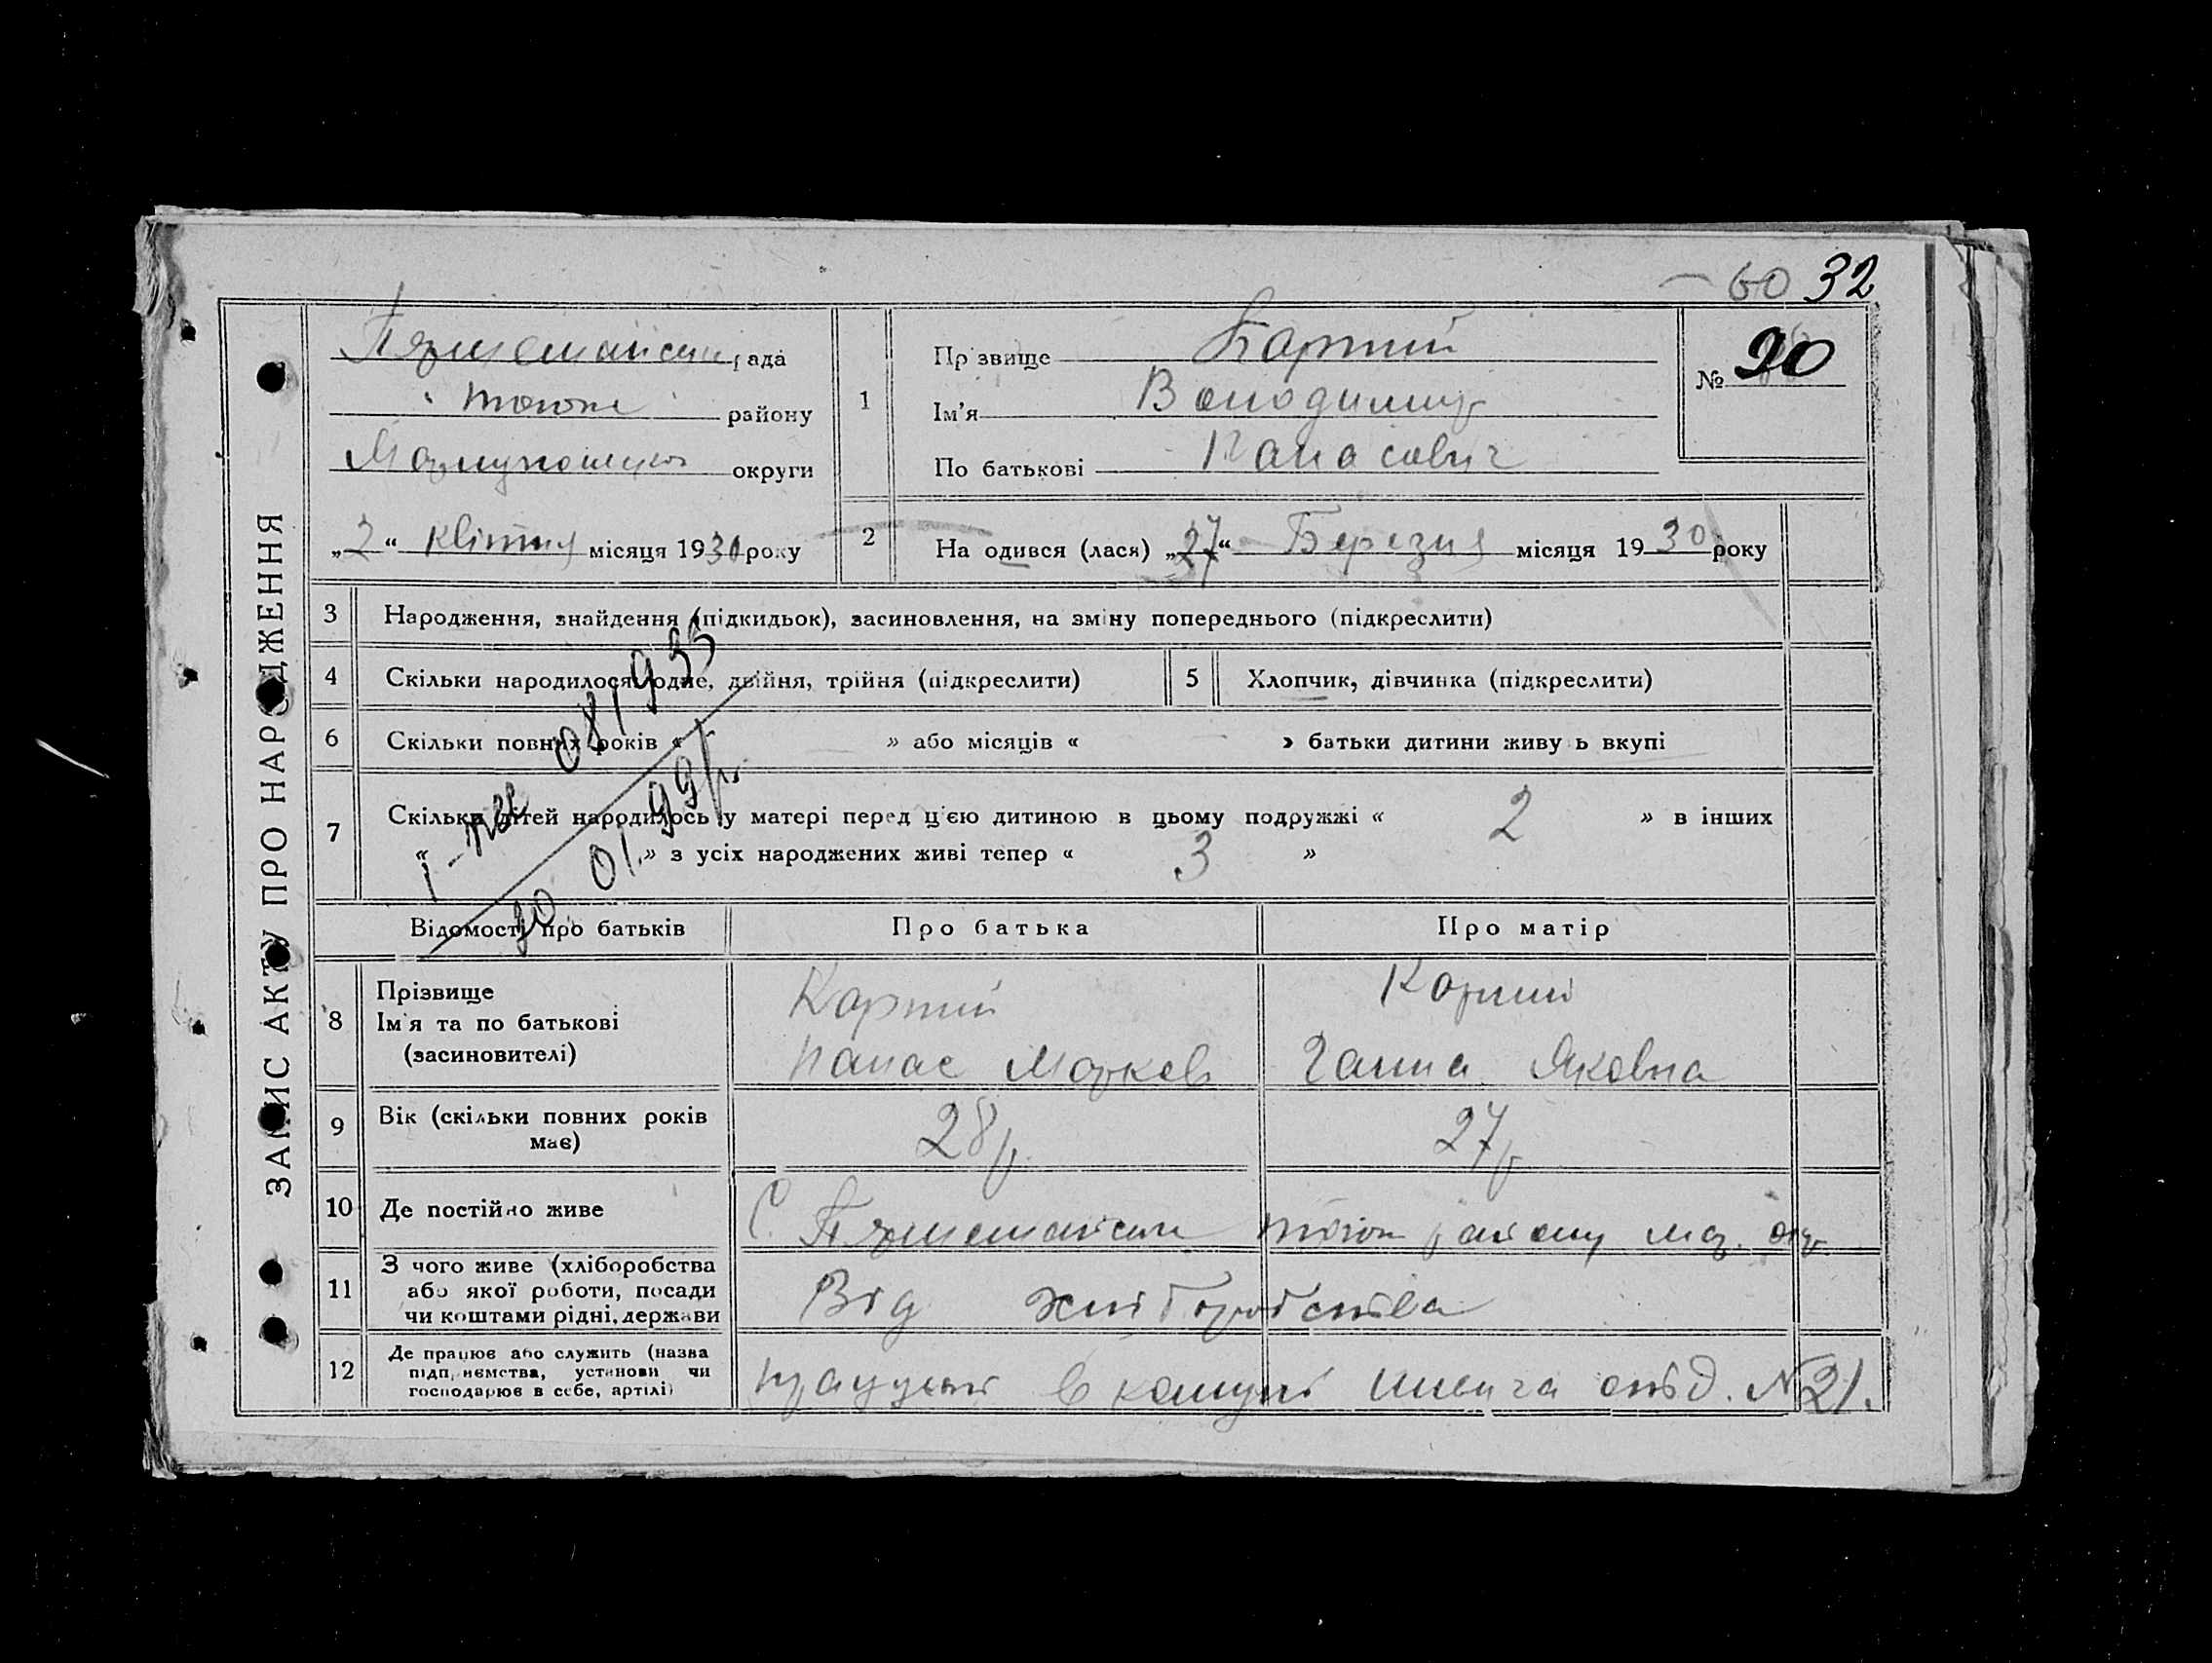 60 32
ЗАПИС АКТУ ПРО НАРОДЖЕННЯ
Першотравенська рада
району
Маріупольської округи
„2“ Квітня місяця 1930 року
1
Прізвище Картий
Ім'я Володимир
По батькові Панасович
№ 20
2
На одився (лася) „27“ Березня місяця 1930 року
3 Народження, знайдення (підкидьок), засиновлення, на зміну попереднього (підкреслити)
4 Скільки народилося: одне, двійня, трійня (підкреслити)
5 Хлопчик, дівчинка (підкреслити)
6 Скільки повних років « » або місяців « » батьки дитини живуть вкупі
7 Скільки дітей народилось у матері перед ц'єю дитиною в цьому подружжі « 2 » в інших
« » з усіх народжених живі тепер « 3 »
081933
01.99р.
Відомості про батьків
Про батька
Про матір
8 Прізвище
Ім'я та по батькові
(засиновителі)
Картий
Панас Марков
Картий
Ганна Яковна
9 Вік (скільки повних років
має)
28 р.
27 р
10 Де постійно живе
С. району Мар. окр.
11 З чого живе (хліборобства
або якої роботи, посади
чи коштами рідні, держави
Від хліборобства
12 Де працює або служить (назва
підприємства, установи чи
господарює в себе, артілі)
працюють в комуні відд. №21.